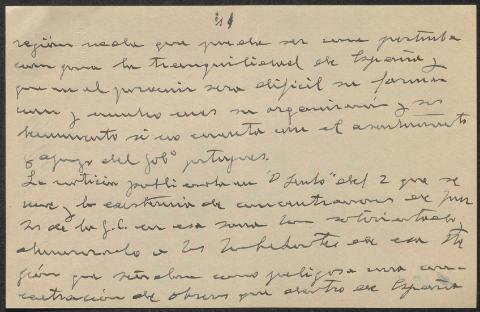 región nada que pueda ser una perturba
cion para la tranquilidad de España y
que en el porvenir sera dificil su forma
cion y mucho mas su organizacion y
si no cuenta con el asentimiento
y apoyo del Gobº portugues.
La noticia publicada en "O Seculo" del 2 que se
y la existencia de concentraciones de fuer
zas de la G.C. en esa zona
a los habitantes de esa re
gión que señalan como peligrosa una con
centración de obreros que dentro de España